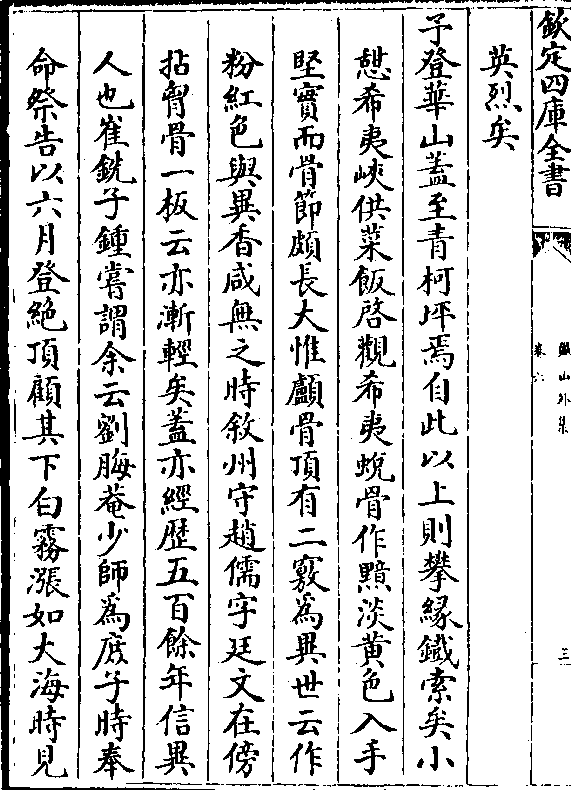 欽定四庫全書
儼山外集
卷六
三
英烈矣
予登華山蓋至青柯坪焉自此以上則攀縁鐡索矣小
憇希夷峽供菜飯啓觀希夷蛻骨作黯淡黄色入手
堅實而骨節頗長大惟顱骨頂有二竅為異世云作
粉紅色與異香咸無之時敘州守趙儒字廷文在傍
拈胷骨一板云亦漸輕矣蓋亦經歴五百餘年信異
人也崔銑子鍾嘗謂余云劉晦菴少師為庶子時奉
命祭告以六月登絶頂顧其下白霧漲如大海時見